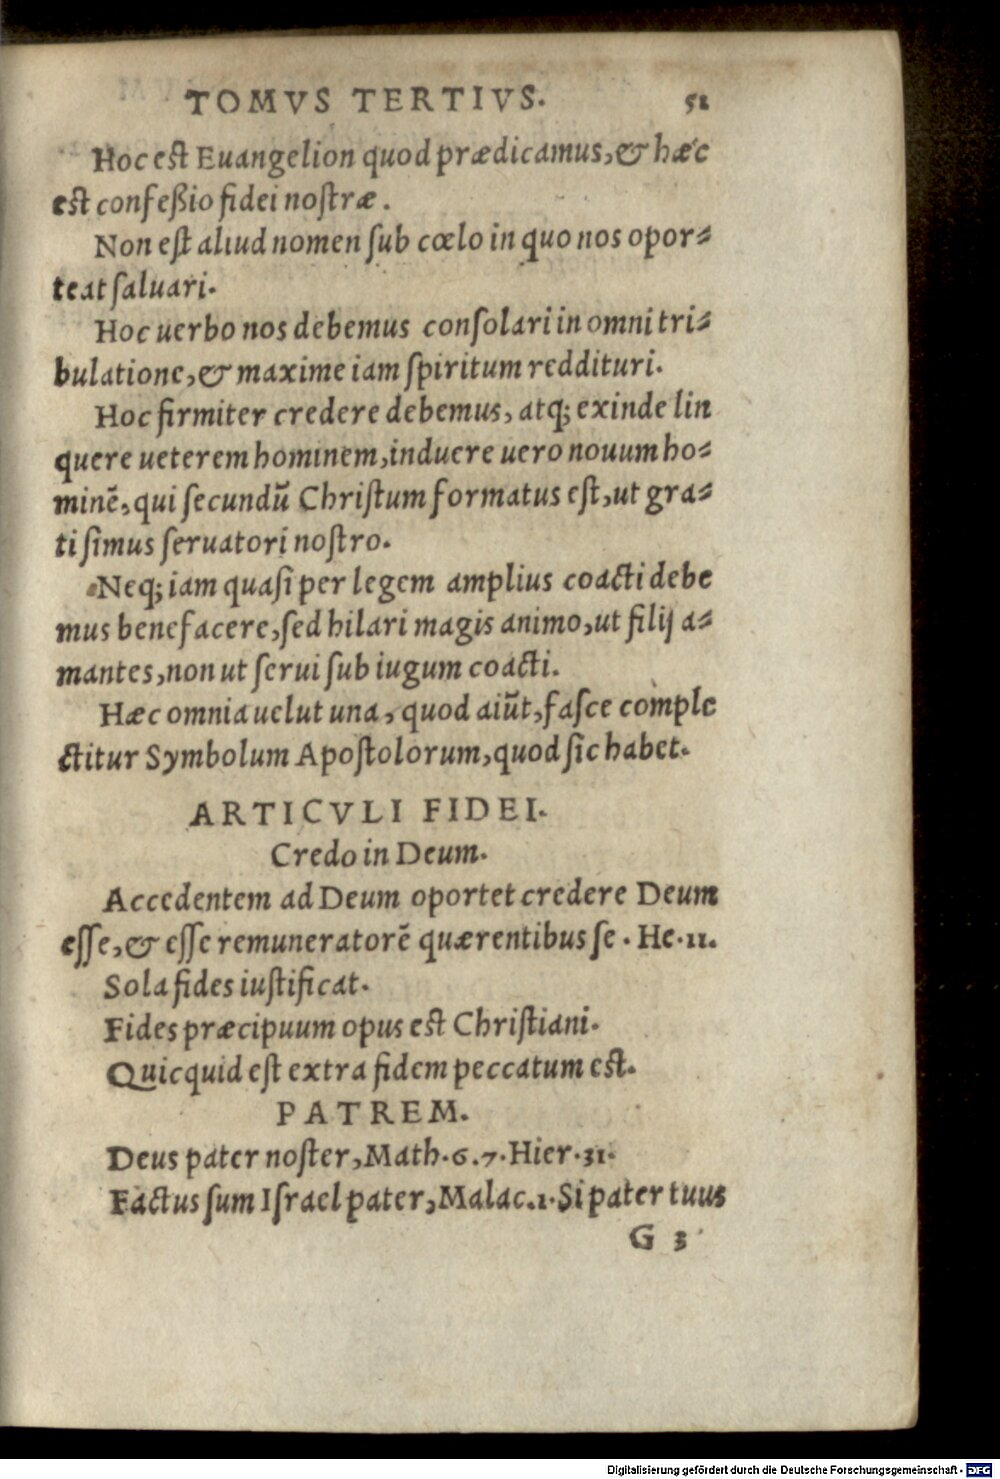 TOMVS TERTIVS. 51
Hoc est Euangelion quod prædicamus, & hæc
est confeßio fidei nostræ.
Non est aliud nomen sub cœlo in quo nos opor-
teat saluari.
Hoc uerbo nos debemus consolari in omni tri-
bulatione, & maxime iam spiritum reddituri.
Hoc firmiter credere debemus, atq; exinde lin
quere ueterem hominem, induere uero nouum ho-
minē, qui secundū Christum formatus est, ut gra-
ti simus seruatori nostro.
Neq; iam quasi per legem amplius coacti debe
mus benefacere, sed hilari magis animo, ut filij a-
mantes, non ut serui sub iugum coacti.
Hæc omnia uelut una, quod aiūt, fasce comple
ctitur Symbolum Apostolorum, quod sic habet.
ARTICVLI FIDEI.
Credo in Deum.
Accedentem ad Deum oportet credere Deum
esse, & esse remuneratorē quærentibus se. He.11.
Sola fides iustificat.
Fides præcipuum opus est Christiani.
Quicquid est extra fidem peccatum est.
PATREM.
Deus pater noster, Math.6.7.Hier.31.
Factus sum Israel pater, Malac.1. Si pater tuus
G 3
Digitalisierung gefördert durch die Deutsche Forschungsgemeinschaft - DFG